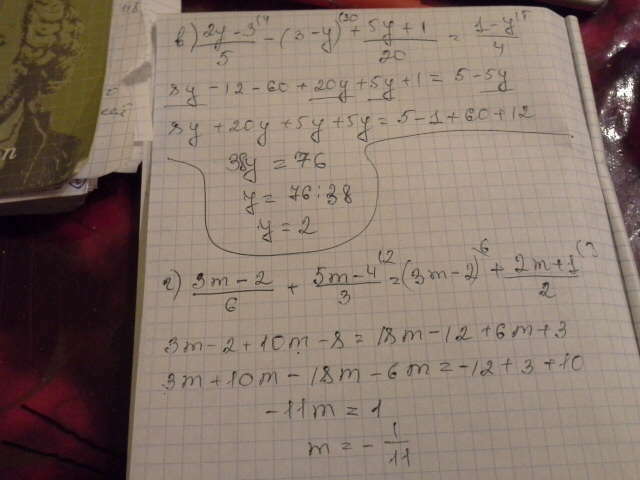 в) (2y-3)/5 ⁽⁴ - (3-y) ⁽²⁰ + (5y+1)/20 = (1-y)/4 ⁽⁵
8y-12-60+20y+5y+1=5-5y
8y+20y+5y+5y=5-1+60+12
38y=76
y=76:38
y=2
г) (3m-2)/6 + (5m-4)/3 ⁽² = (3m-2) ⁽⁶ + (2m+1)/2 ⁽³
3m-2+10m-8=18m-12+6m+3
3m+10m-18m-6m=-12+3+10
-11m=1
m=-1/11